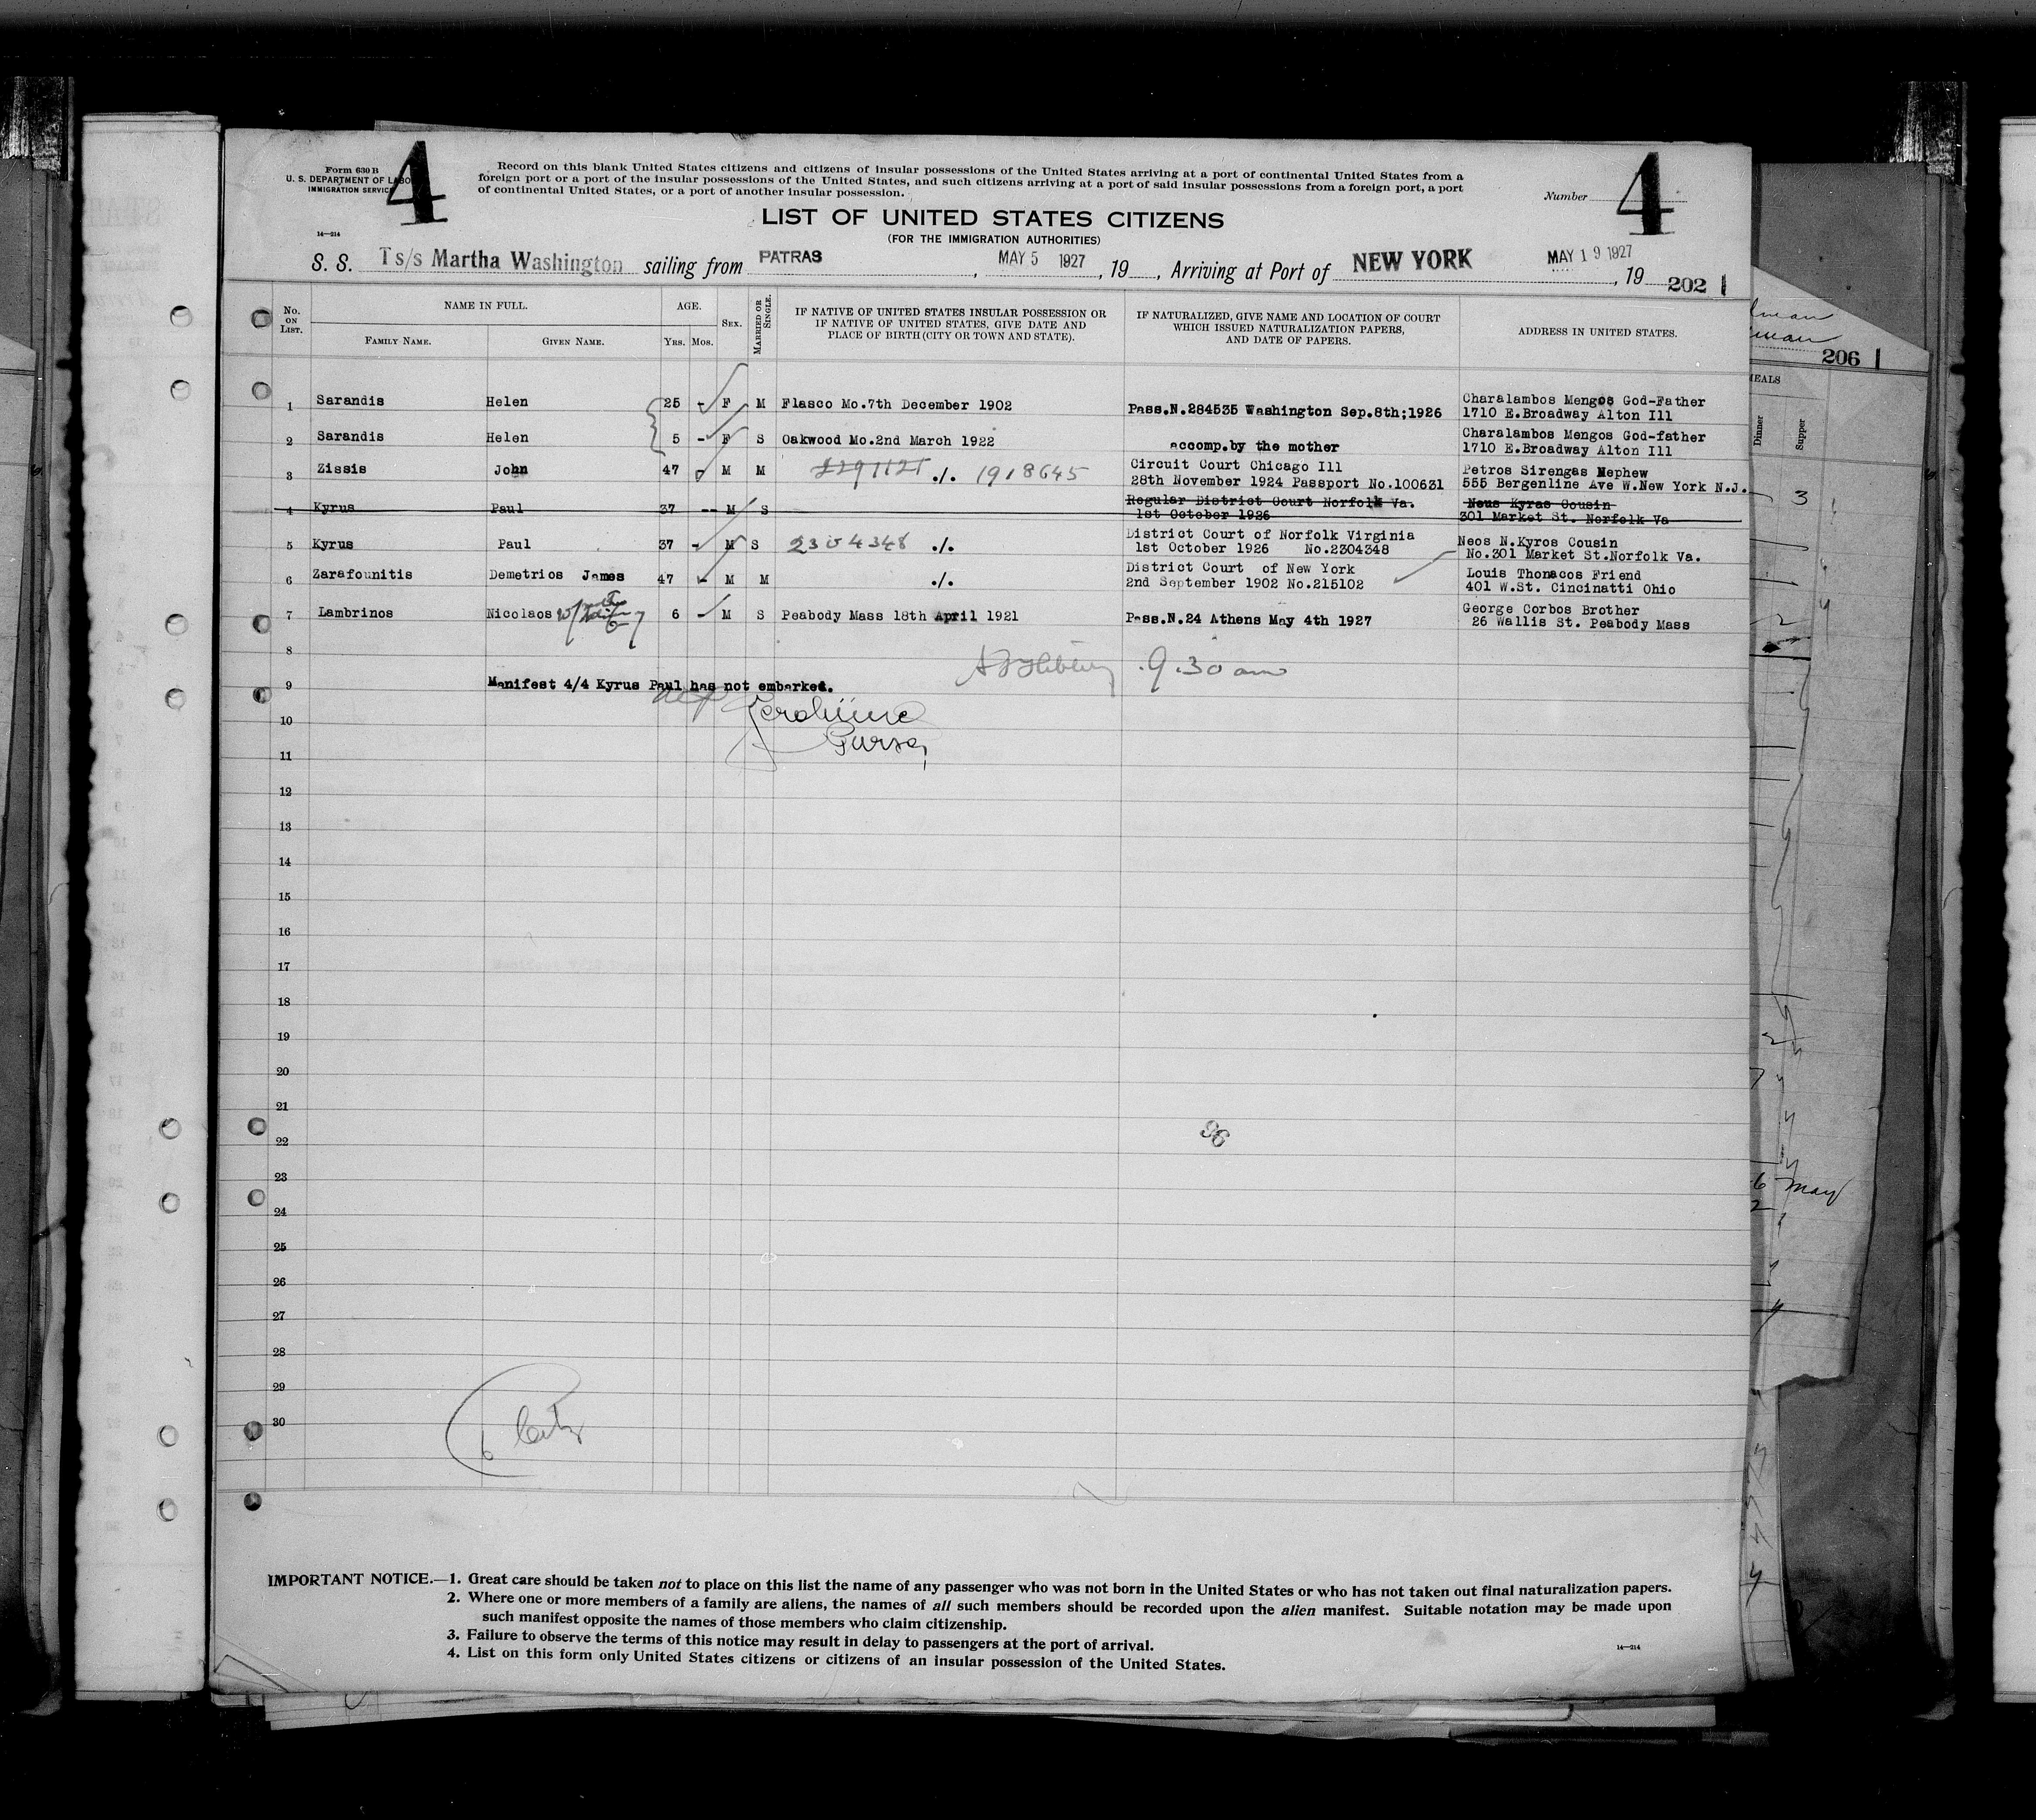 4
4
Form 630 B
U. S. DEPARTMENT OF LABOR
IMMIGRATION SERVICE
14—214
Record on this blank United States citizens and citizens of insular possessions of the United States arriving at a port of continental United States from a
foreign port or a port of the insular possessions of the United States, and such citizens arriving at a port of said insular possessions from a foreign port, a port
of continental United States, or a port of another insular possession.
Number
LIST OF UNITED STATES CITIZENS
(FOR THE IMMIGRATION AUTHORITIES)
S. S. Ts/s Martha Washington sailing from PATRAS, MAY 5 1927, 19, Arriving at Port of NEW YORK, MAY 19 1927 19
202 1
No. ON LIST.
NAME IN FULL.
FAMILY NAME.
GIVEN NAME.
AGE.
YRS. MOS.
SEX.
MARRIED OR SINGLE.
IF NATIVE OF UNITED STATES INSULAR POSSESSION OR
IF NATIVE OF UNITED STATES, GIVE DATE AND
PLACE OF BIRTH (CITY OR TOWN AND STATE).
IF NATURALIZED, GIVE NAME AND LOCATION OF COURT
WHICH ISSUED NATURALIZATION PAPERS,
AND DATE OF PAPERS.
ADDRESS IN UNITED STATES.
1 Sarandis Helen 25 - F M Flasco Mo.7th December 1902 Pass.N.284535 Washington Sep.8th;1926 Charalambos Mengos God-Father
1710 E.Broadway Alton Ill
2 Sarandis Helen 5 - F S Oakwood Mo.2nd March 1922 accomp.by the mother Charalambos Mengos God-father
1710 E.Broadway Alton Ill
3 Zissis John 47 M M ./. 1918645 Circuit Court Chicago Ill Petros Sirengas Nephew
28th November 1924 Passport No.100631 555 Bergenline Ave W.New York N.J.
4 Kyrus Paul 37 -- M S Regular District Court Norfolk Va. Neus Kyras Cousin
1st October 1926 301 Market St. Norfolk Va
5 Kyrus Paul 37 - M S 2304348 ./. District Court of Norfolk Virginia Neos N.Kyros Cousin
1st October 1926 No.2304348 No.301 Market St.Norfolk Va.
6 Zarafounitis Demetrios James 47 - M M ./. District Court of New York Louis Thonacos Friend
2nd September 1902 No.215102 401 W.St. Cincinatti Ohio
7 Lambrinos Nicolaos 6 - M S Peabody Mass 18th April 1921 Pass.N.24 Athens May 4th 1927 George Corbos Brother
26 Wallis St. Peabody Mass
8
9.30 am
9 Manifest 4/4 Kyrus Paul has not embarked.
10
Purser
11
12
13
14
15
16
17
18
19
20
21
22
96
23
24
25
26
27
28
29
30
6
IMPORTANT NOTICE.—1. Great care should be taken not to place on this list the name of any passenger who was not born in the United States or who has not taken out final naturalization papers.
2. Where one or more members of a family are aliens, the names of all such members should be recorded upon the alien manifest. Suitable notation may be made upon
such manifest opposite the names of those members who claim citizenship.
3. Failure to observe the terms of this notice may result in delay to passengers at the port of arrival.
4. List on this form only United States citizens or citizens of an insular possession of the United States.
14—214
206 1
MEALS
Dinner
Supper
3
May